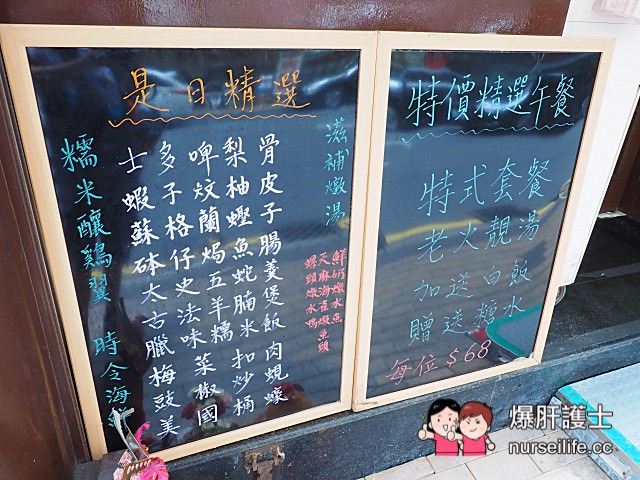 是日精選
糯米釀鷄翼
時令海
士多啤梨骨
蝦子炆柚皮
蘇格蘭蟶子
砵仔焗魚腸
太史五蛇羹
古法羊腩煲
臘味糯米飯
梅菜扣肉
豉椒炒蜆
美國桶蠔
滋補燉湯
鮮奶燉水魚
天麻海雀燉魚頭
螺頭燉水鴨
特價精選午餐
特式套餐
老火靚湯
加送白飯
贈送糖水
每位$68
爆肝護士
nurseilife.cc